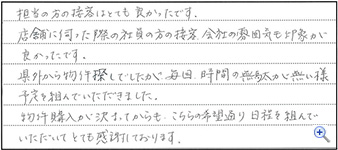 担当の方の接客はとても良かったです。
店舗に伺った際の社員の方の接客、会社の雰囲気も印象が
良かったです。
県外から物件探しでしたが、毎回、時間の無駄が無い様
予定を組んでいただきました。
物件購入が決まってからも、こちらの希望通り日程を組んで
いただいてとても感謝しております。